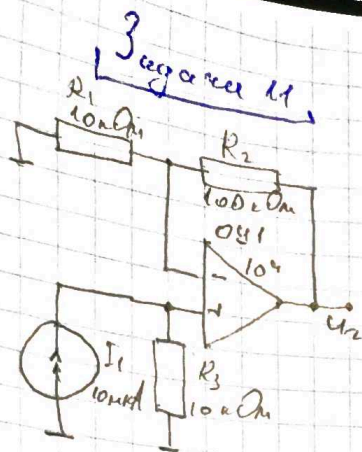 Задача 11
R1
10кОм
R2
100кОм
ОУ1
10⁴
-
+
U2
I1
10мкА
R3
10кОм